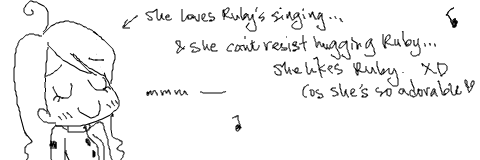 She loves Ruby's singing...
& she can't resist hugging Ruby...
She likes Ruby. XD
mmm — Cos she's so adorable♥